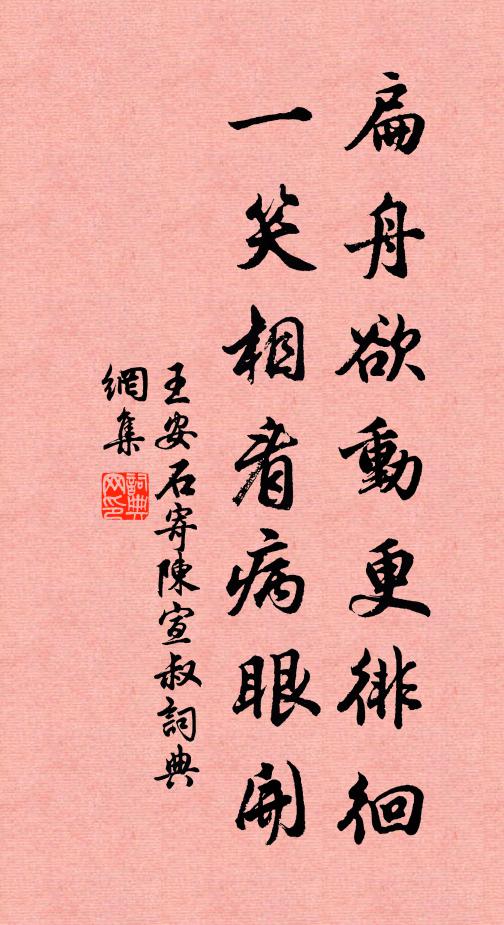 扁舟欲動更徘徊
一笑相看病眼開
王安石寄陳宣叔詞典
網集
詞典
网印